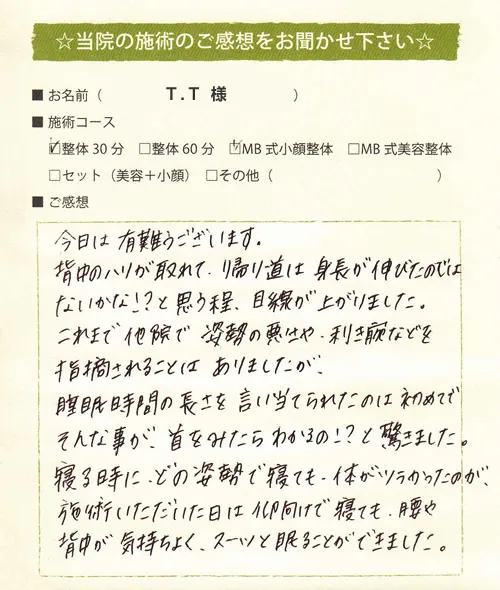 ☆当院の施術のご感想をお聞かせ下さい☆
■お名前（ T.T 様 ）
■施術コース
☑整体30分 □整体60分 ☑MB式小顔整体 □MB式美容整体
□セット（美容＋小顔） □その他（ ）
■ご感想
今日は有難うございます。
背中のハリが取れて、帰り道は身長が伸びたのでは
ないかな!?と思う程、目線が上がりました。
これまで他院で姿勢の悪さや、利き腕などを
指摘されることはありましたが、
睡眠時間の長さを言い当てられたのは初めてで
そんな事が、首をみたらわかるの!?と驚きました。
寝る時に、どの姿勢で寝ても、体がツラかったのが、
施術いただいた日は仰向けで寝ても、腰や
背中が気持ちよく、スーッと眠ることができました。